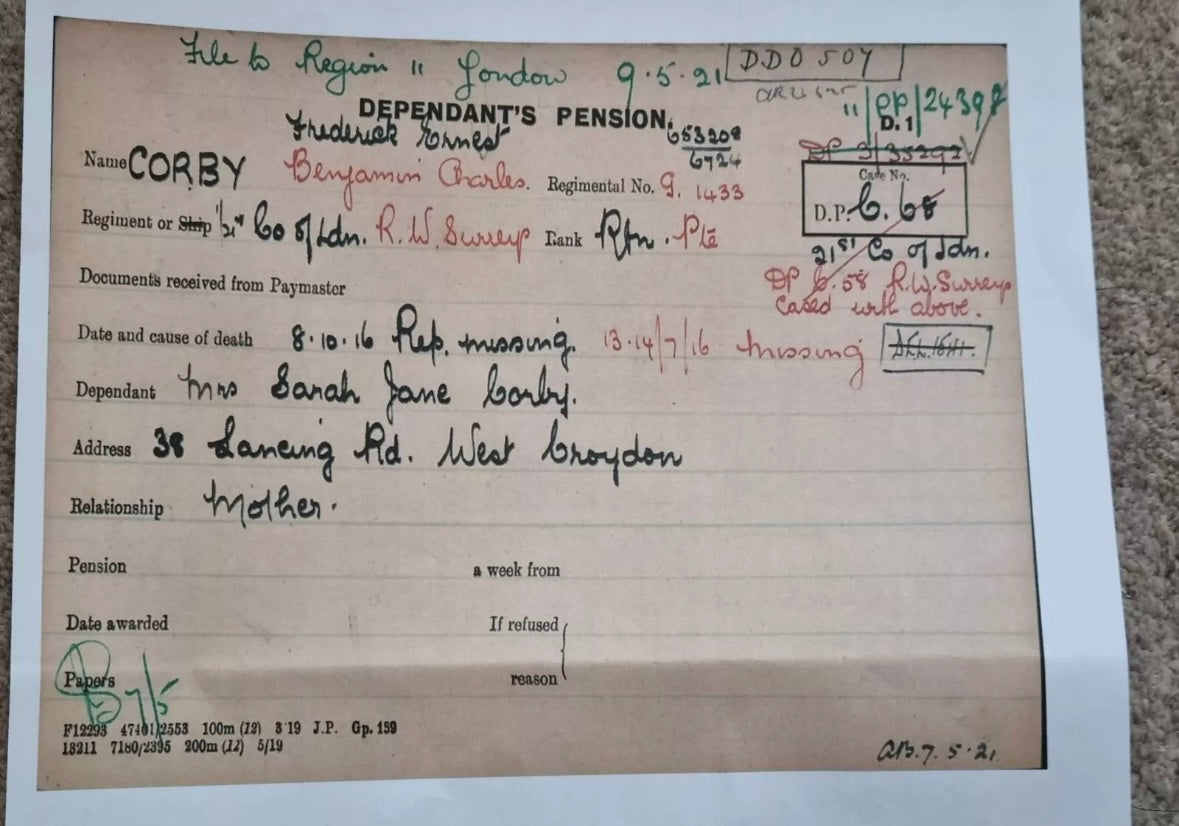 File to Region 11 London 9.5.21 DDO 507
11/DP/24398
DEPENDANT'S PENSION. D.1
Frederick Ernest 653208
6724
DP 3/35292
Name CORBY Benjamin Charles. Regimental No. G. 1433
Case No.
D.P. C. 68
Regiment or Ship 1/21st Co of Ldn. R.W. Surreys Rank Rfn. Pte
21st Co of Ldn.
DP C.58 R.W. Surreys
Cased with above.
Documents received from Paymaster
Date and cause of death 8.10.16 Rep. missing. 13.14/7/16 missing
Dependant Mrs Sarah Jane Corby.
Address 38 Lancing Rd. West Croydon
Relationship Mother.
Pension a week from
Date awarded If refused
Papers reason
7/5
F12293 47401/2553 100m (12) 3 19 J.P. Gp. 159
13211 7180/2395 200m (12) 5/19
7.5.21